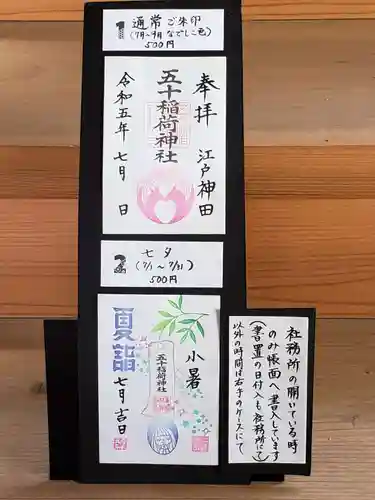 1 通常ご朱印
(7月~9月 なでしこ色)
500円
奉拝
江戸神田
五十稲荷神社
令和五年 七月 日
2 七夕
(7/1~7/31)
500円
小暑
五十稲荷神社
夏詣
七月吉日
社務所の開いている時
のみ帳面へ書入しています
(書置の日付入も社務所にて)
以外の時間は右手のケースにて